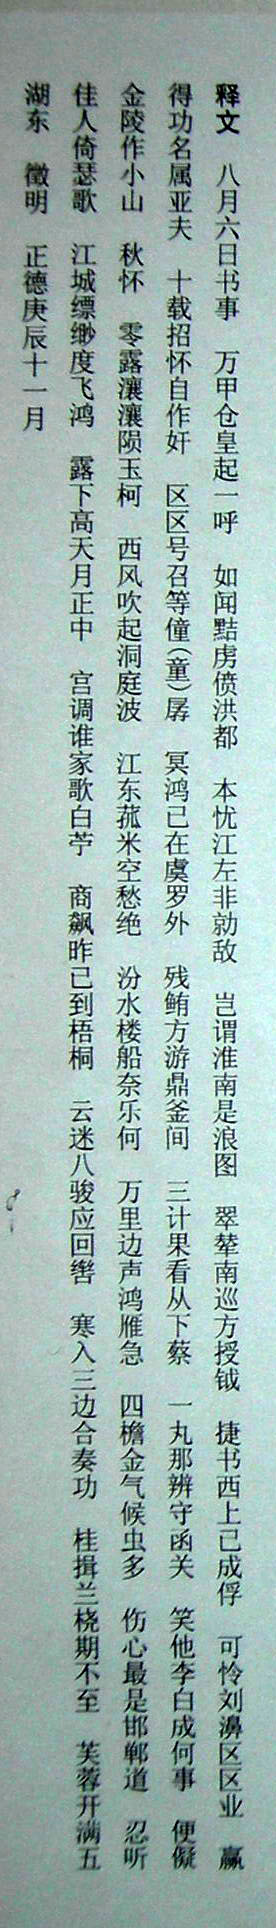 释文　八月六日书事　万甲仓皇起一呼　如闻黠虏偾洪都　本忧江左非勍敌　岂谓淮南是浪图　翠辇南巡方授钺　捷书西上已成俘　可怜刘濞区区业　赢
得功名属亚夫　十载招怀自作奸　区区号召等僮(童)孱　冥鸿己在虞罗外　残鲔方游鼎釜间　三计果看从下蔡　一丸那辨守函关　笑他李白成何事　便儗
金陵作小山　秋怀　零露瀼瀼陨玉柯　西风吹起洞庭波　江东菰米空愁绝　汾水楼船奈乐何　万里边声鸿雁急　四檐金气候虫多　伤心最是邯郸道　忍听
佳人倚瑟歌　江城缥缈度飞鸿　露下高天月正中　宫调谁家歌白苧　商飙昨己到梧桐　云迷八骏应回辔　寒入三边合奏功　桂揖兰桡期不至　芙蓉开满五
湖东　徵明　正德庚辰十一月